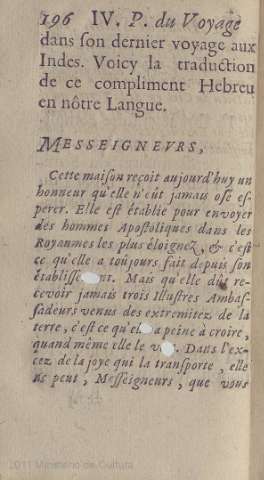 196 IV. P. du Voyage
dans son dernier voyage aux
Indes. Voicy la traduction
de ce compliment Hebreu
en nôtre Langue.
MESSEIGNEVRS,
Cette maison reçoit aujourd'huy un
honneur qu'elle n'eût jamais osé es-
perer. Elle est établie pour envoyer
des hommes Apostoliques dans les
Royaumes les plus éloignez, & c'est
ce qu'elle a toûjours fait depuis son
Mais qu'elle dût re-
cevoir jamais trois Illustres Ambas-
sadeurs venus des extremitez de la
terre, c'est ce a peine à croire,
quand même elle le Dans l'ex-
cez de la joye qui la transporte, elle
ne peut, Messeigneurs, que vous
2011 Ministerio de Cultura